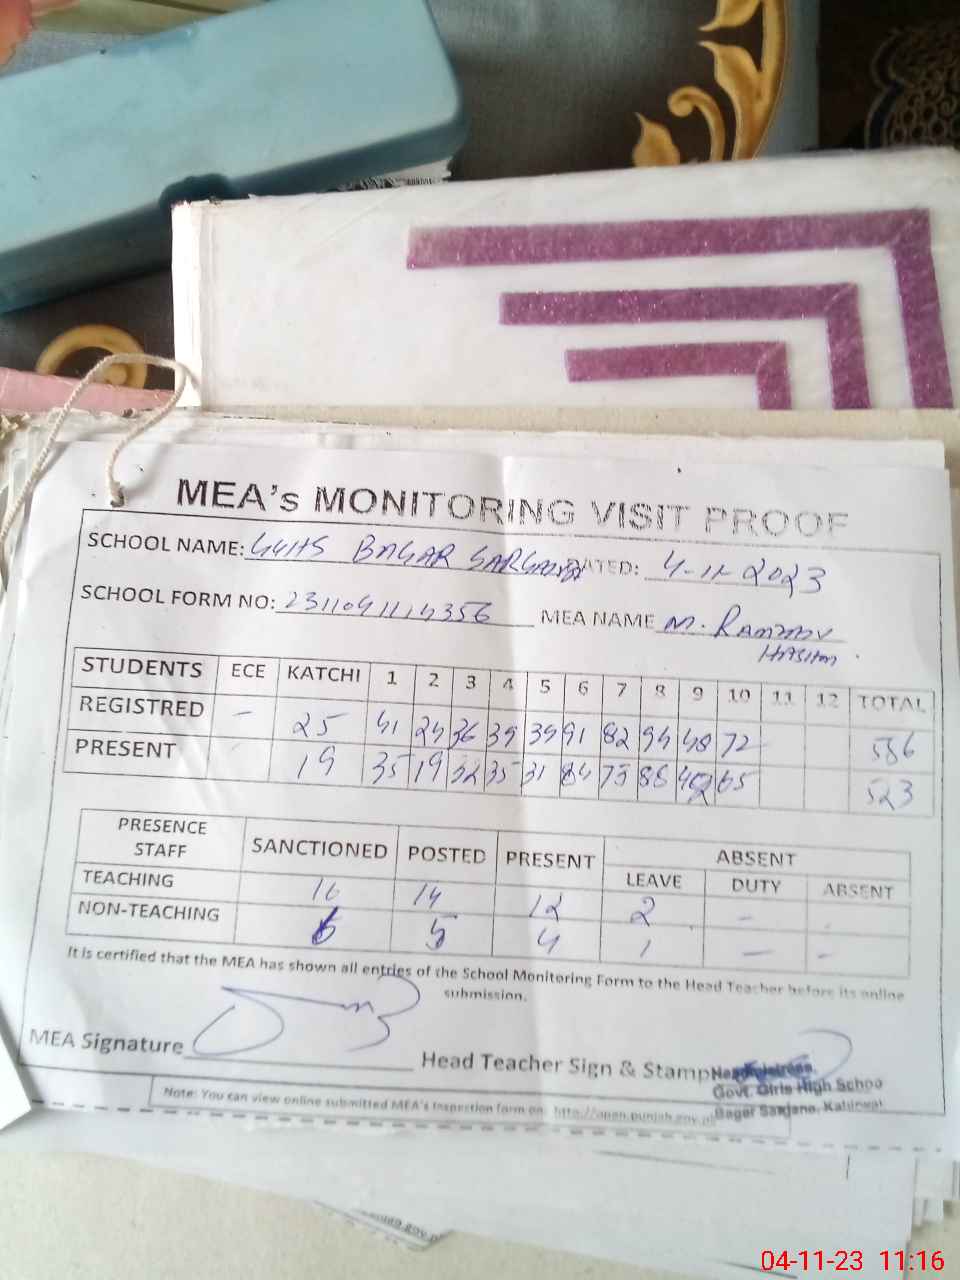 MEA's MONITORING VISIT PROOF
SCHOOL NAME: GGHS BAGAR SARGANA DATED: 4-11-2023
SCHOOL FORM NO: MEA NAME M. Ramzan
STUDENTS ECE KATCHI 1 2 3 4 5 6 7 8 9 10 11 12 TOTAL
REGISTRED - 25 41 24 36 39 39 91 82 94 48 72
PRESENT - 19 35 19 32 35 31 84 73 88 42 65 523
PRESENCE STAFF SANCTIONED POSTED PRESENT ABSENT
LEAVE DUTY ABSENT
TEACHING 16 14 12 2 - -
NON-TEACHING 6 5 4 1 - -
It is certified that the MEA has shown all entries of the School Monitoring Form to the Head Teacher before its online
submission.
MEA Signature
Head Teacher Sign & Stamp
Headmistress
Govt. Girls High Schoo
Bagar Sargana, Kabirwal
Note: You can view online submitted MEA's Inspection form on: http://open.punjab.gov.pk
04-11-23 11:16